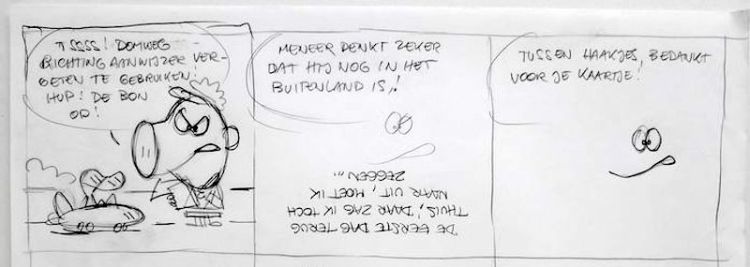 TSSSS! DOMWEG
RICHTINGAANWIJZER VER-
GETEN TE GEBRUIKEN!
HUP! DE BON
OP!
MENEER DENKT ZEKER
DAT HIJ NOG IN HET
BUITENLAND IS,!
DE EERSTE DAG TERUG
THUIS, DAAR ZAG IK TOCH
NAAR UIT, MOET IK
ZEGGEN...
TUSSEN HAAKJES, BEDANKT
VOOR JE KAARTJE!